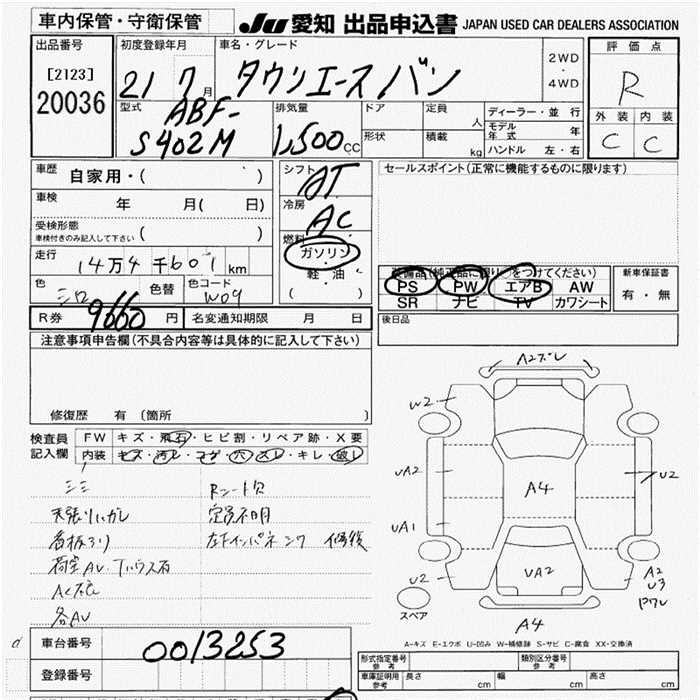 車内保管・守衛保管
JU 愛知 出品申込書 JAPAN USED CAR DEALERS ASSOCIATION
出品番号
[2123]
20036
初度登録年月
21 7月
車名・グレード
タウンエースバン
2WD
・
4WD
評価点
R
外装 内装
C C
型式
ABF-
S402M
排気量
1,500CC
ドア
形状
定員 人
積載 kg
ディーラー・並行
モデル年式 年
ハンドル 左・右
車歴 自家用・( )
車検 年 月( 日)
受検形態
車検付きのみ記入して下さい ( )
走行 14万4千601km
色 シロ 色替 色コード W09
R券 9660円 名変通知期限 月 日
シフト AT
冷房 AC
燃料
ガソリン
軽・油
( )
セールスポイント(正常に機能するものに限ります)
装備品(純正品に限り○をつけてください)
PS PW エアB AW
SR ナビ TV カワシート
新車保証書
有・無
後日品
注意事項申告欄(不具合内容等は具体的に記入して下さい)
修復歴 有(箇所 )
検査員記入欄
FW キズ・飛石・ヒビ割・リペア跡・X要
内装 キズ・汚レ・コゲ・穴・スレ・キレ・破レ
シミ
天張りハガレ
看板あり
荷室AV、Tハウス石
AC不応
各AV
Rシート欠
定員不明
左Fインパネ 修後
A2ズレ
W2
UA2
UA1
U2
A4
UA2
U2
A2
U3
Pワレ
A4
スペア
A-キズ E-エクボ U-凹み W-補修跡 S-サビ C-腐食 XX-交換済
車台番号 0013253
登録番号
形式指定番号 参考
類別区分番号 参考
車庫証明用 参考 長さ cm 幅 cm 高さ cm